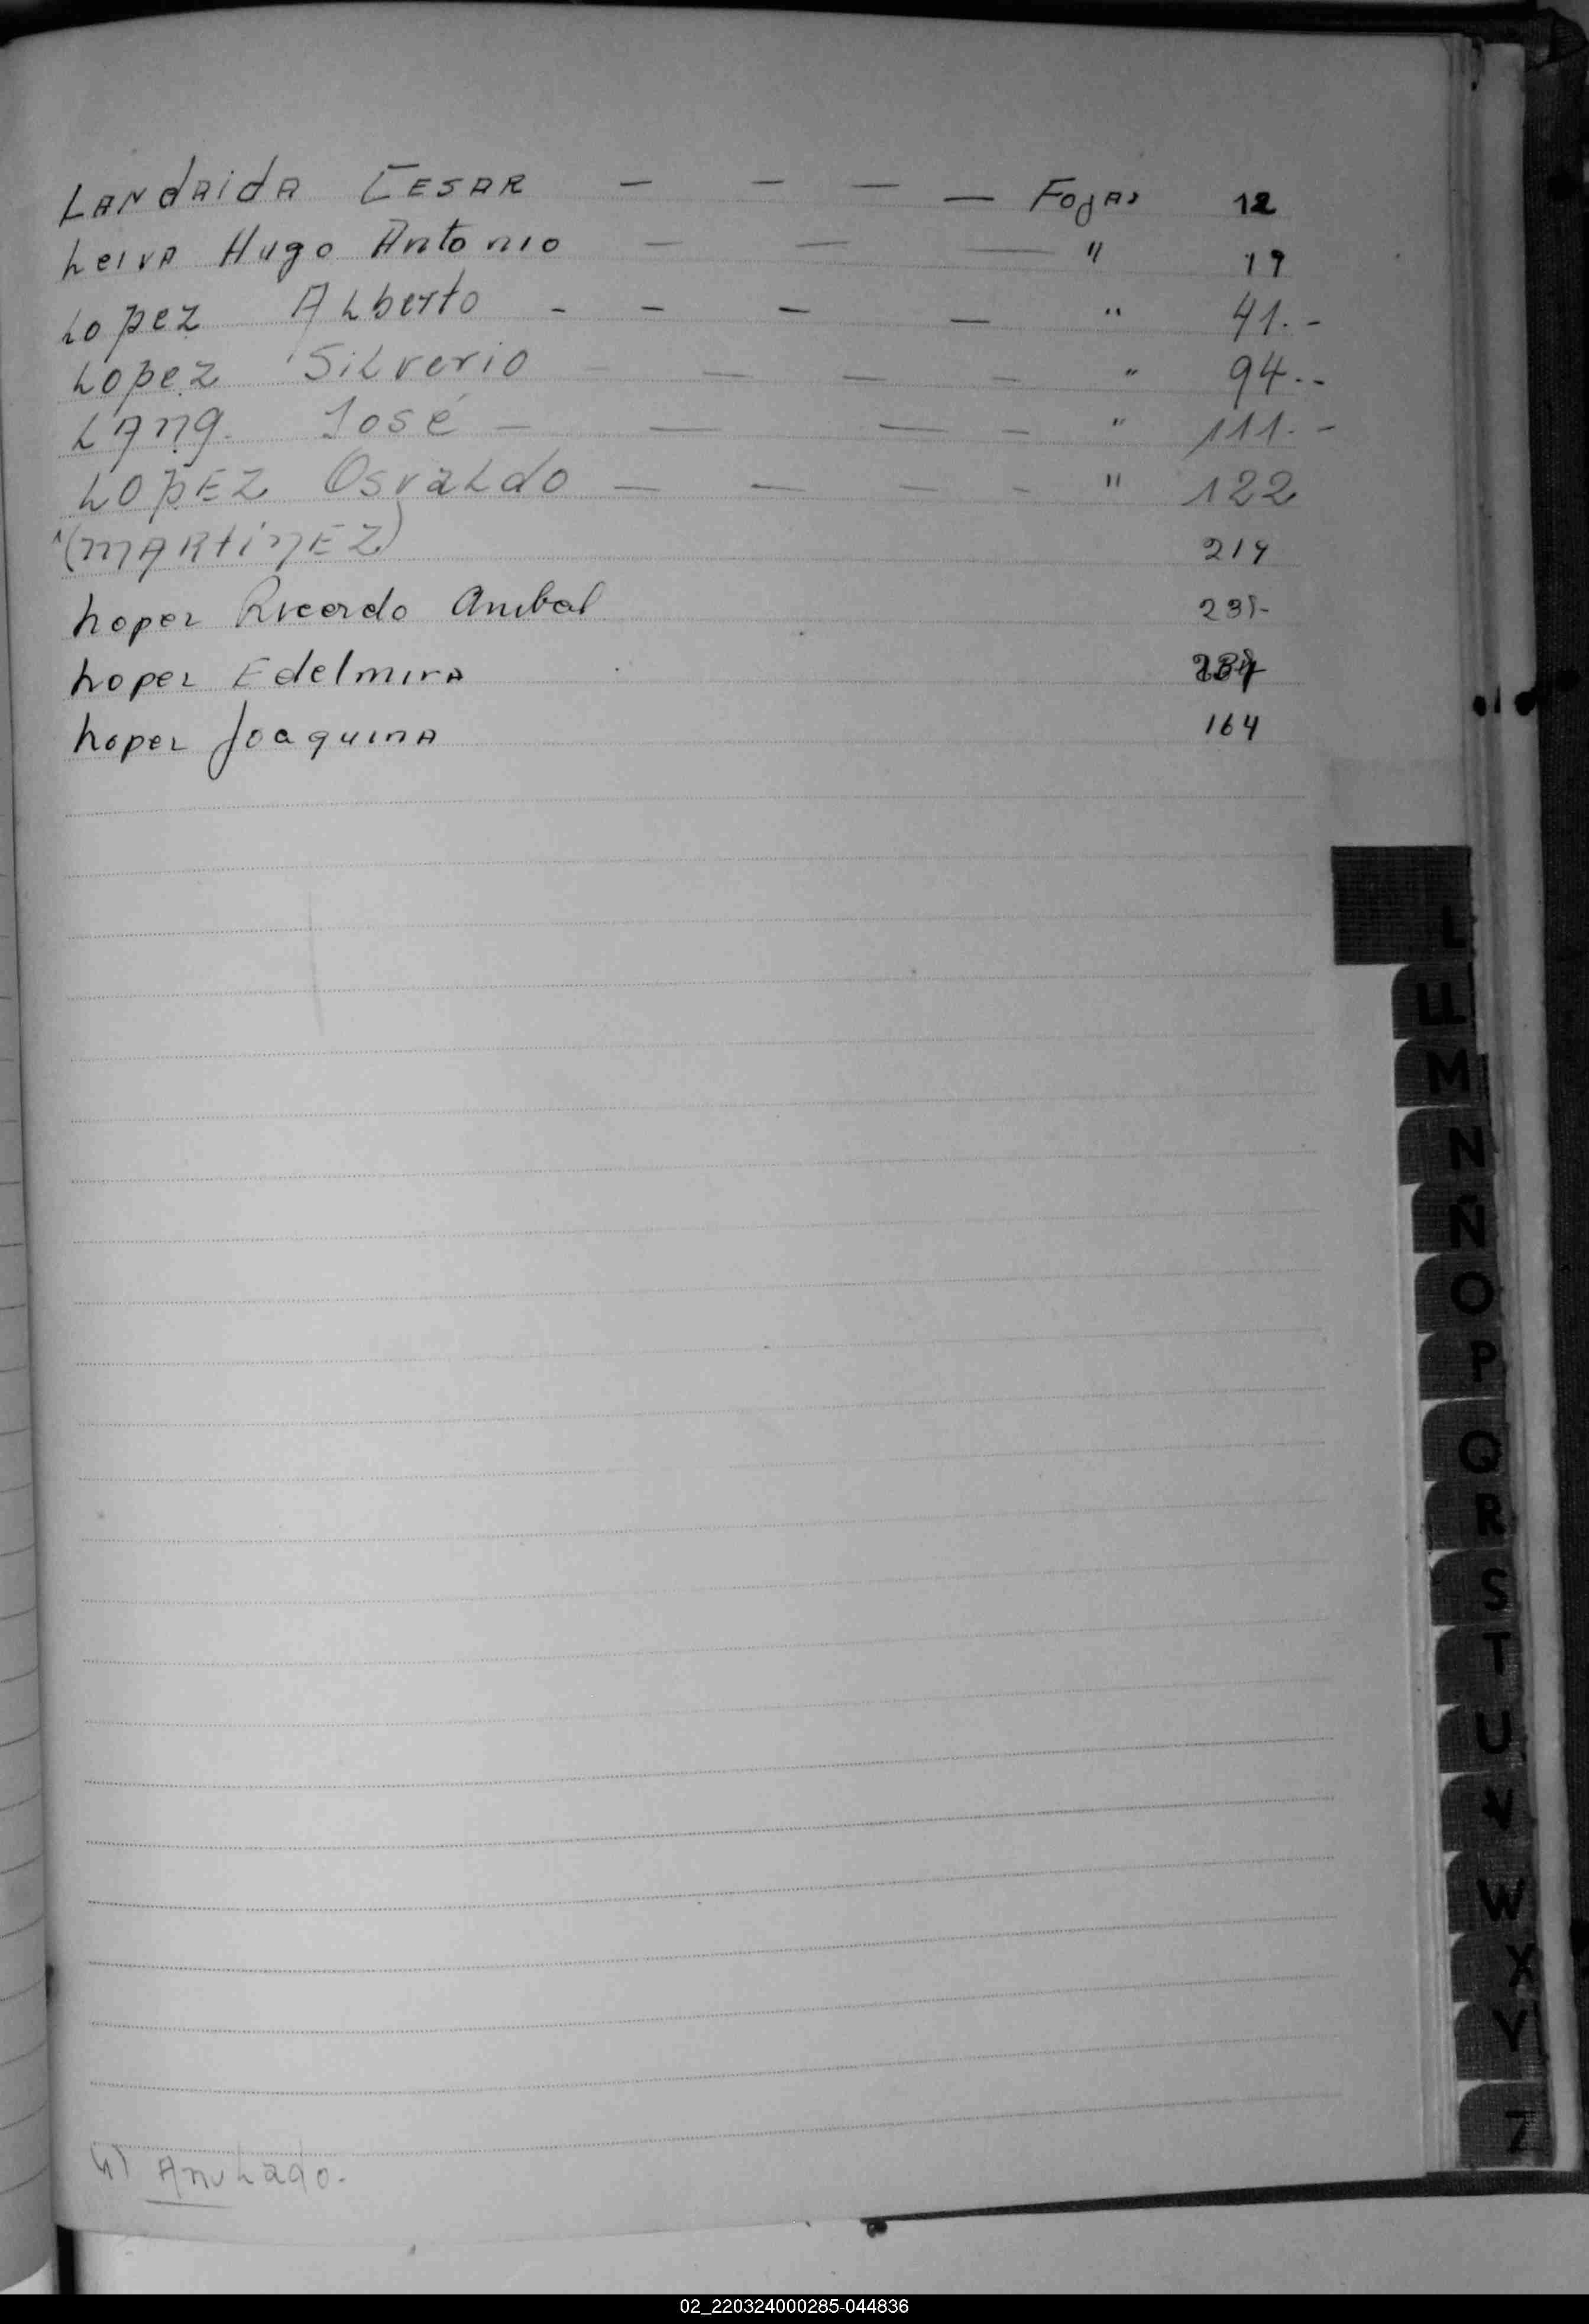 LANdAidA CESAR — — — — Fojas 12
LeivA Hugo Antonio — — — " 19
Lopez ALberto - - - — " 41.-
Lopez SiLverio - — — - " 94.-
LAng. José - — — - " 111.-
LOpEZ OsvaLdo — — - - " 122
(MARtinEZ) 219
Lopez Ricardo Anibal
Lopez EdelmirA
Lopez JoaquinA 164
AnuLado.
L
LL
M
N
Ñ
O
P
Q
R
S
T
U
V
W
X
Y
Z
02_220324000285-044836